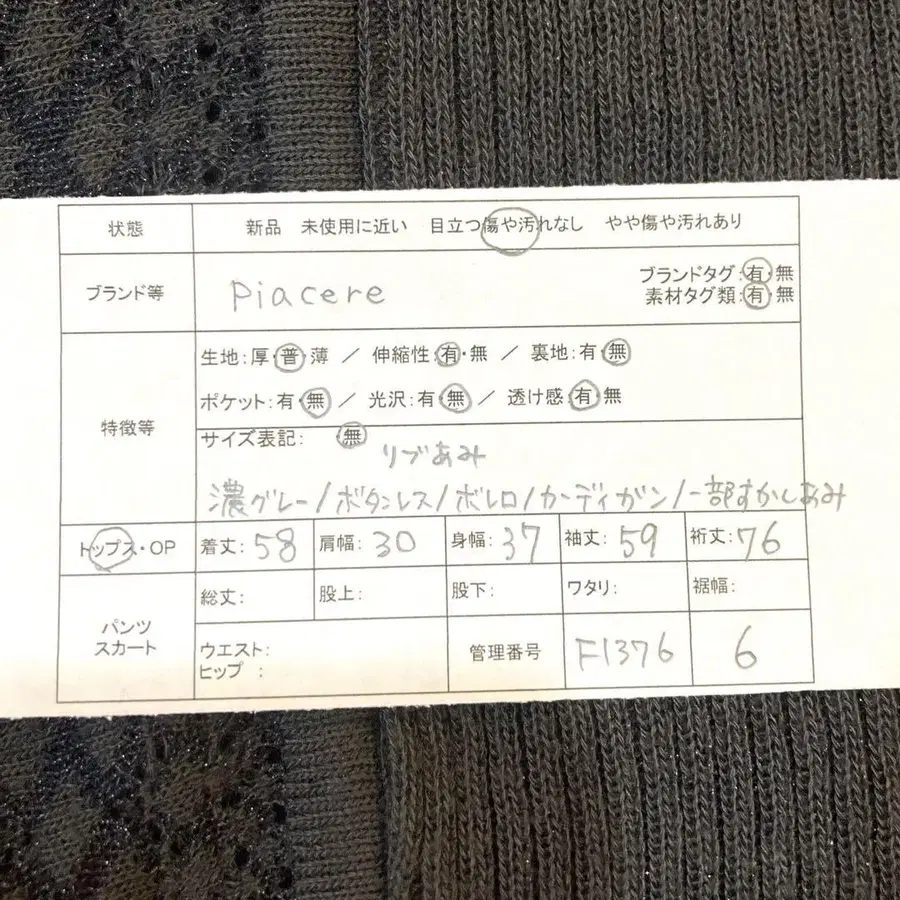 状態 新品 未使用に近い 目立つ傷や汚れなし やや傷や汚れあり
ブランド等 Piacere ブランドタグ:有・無
素材タグ類:有・無
特徴等 生地:厚・普・薄 / 伸縮性:有・無 / 裏地:有・無
ポケット:有・無 / 光沢:有・無 / 透け感:有・無
サイズ表記: ・無
リブあみ
濃グレー/ボタンレス/ボレロ/カーディガン/一部すかしあみ
トップス・OP 着丈:58 肩幅:30 身幅:37 袖丈:59 裄丈:76
パンツ スカート 総丈: 股上: 股下: ワタリ: 裾幅:
ウエスト:
ヒップ : 管理番号 F1376 6